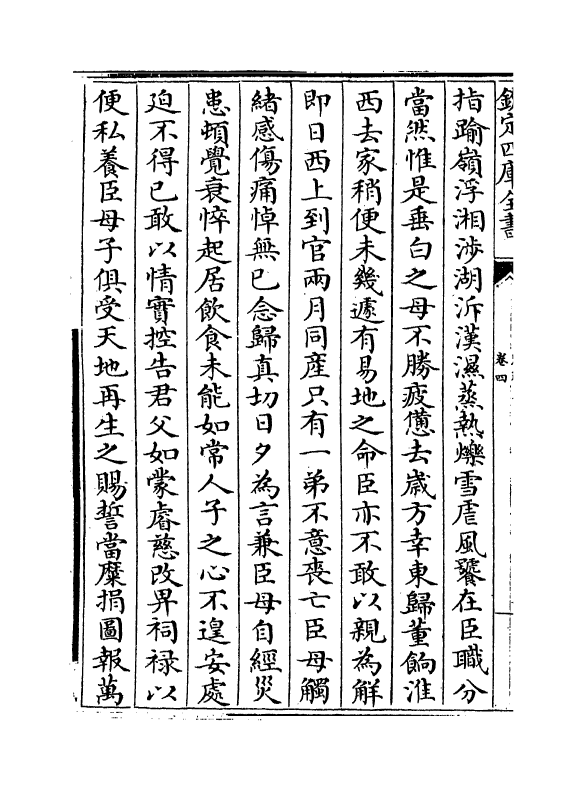 欽定四庫全書
卷四
指踰嶺浮湘渉湖泝漢濕蒸熱爍雪虐風饕在臣職分
當然惟是垂白之母不勝疲憊去歲方幸東歸董餉淮
西去家稍便未幾遽有易地之命臣亦不敢以親為解
即日西上到官兩月同産只有一弟不意喪亡臣母觸
緒感傷痛悼無已念歸真切日夕為言兼臣母自經災
患頓覺衰悴起居飲食未能如常人子之心不遑安處
廹不得已敢以情實控告君父如蒙睿慈改畀祠禄以
便私養臣母子俱受天地再生之賜誓當糜捐圖報萬